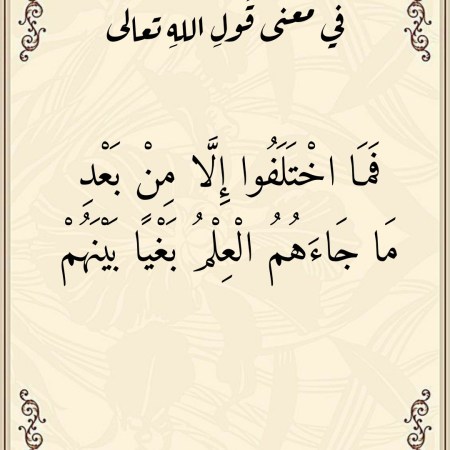 في معنى قَولِ اللهِ تعالى
فَمَا اخْتَلَفُوا إِلَّا مِنْ بَعْدِ
مَا جَاءَهُمُ الْعِلْمُ بَغْيًا بَيْنَهُمْ